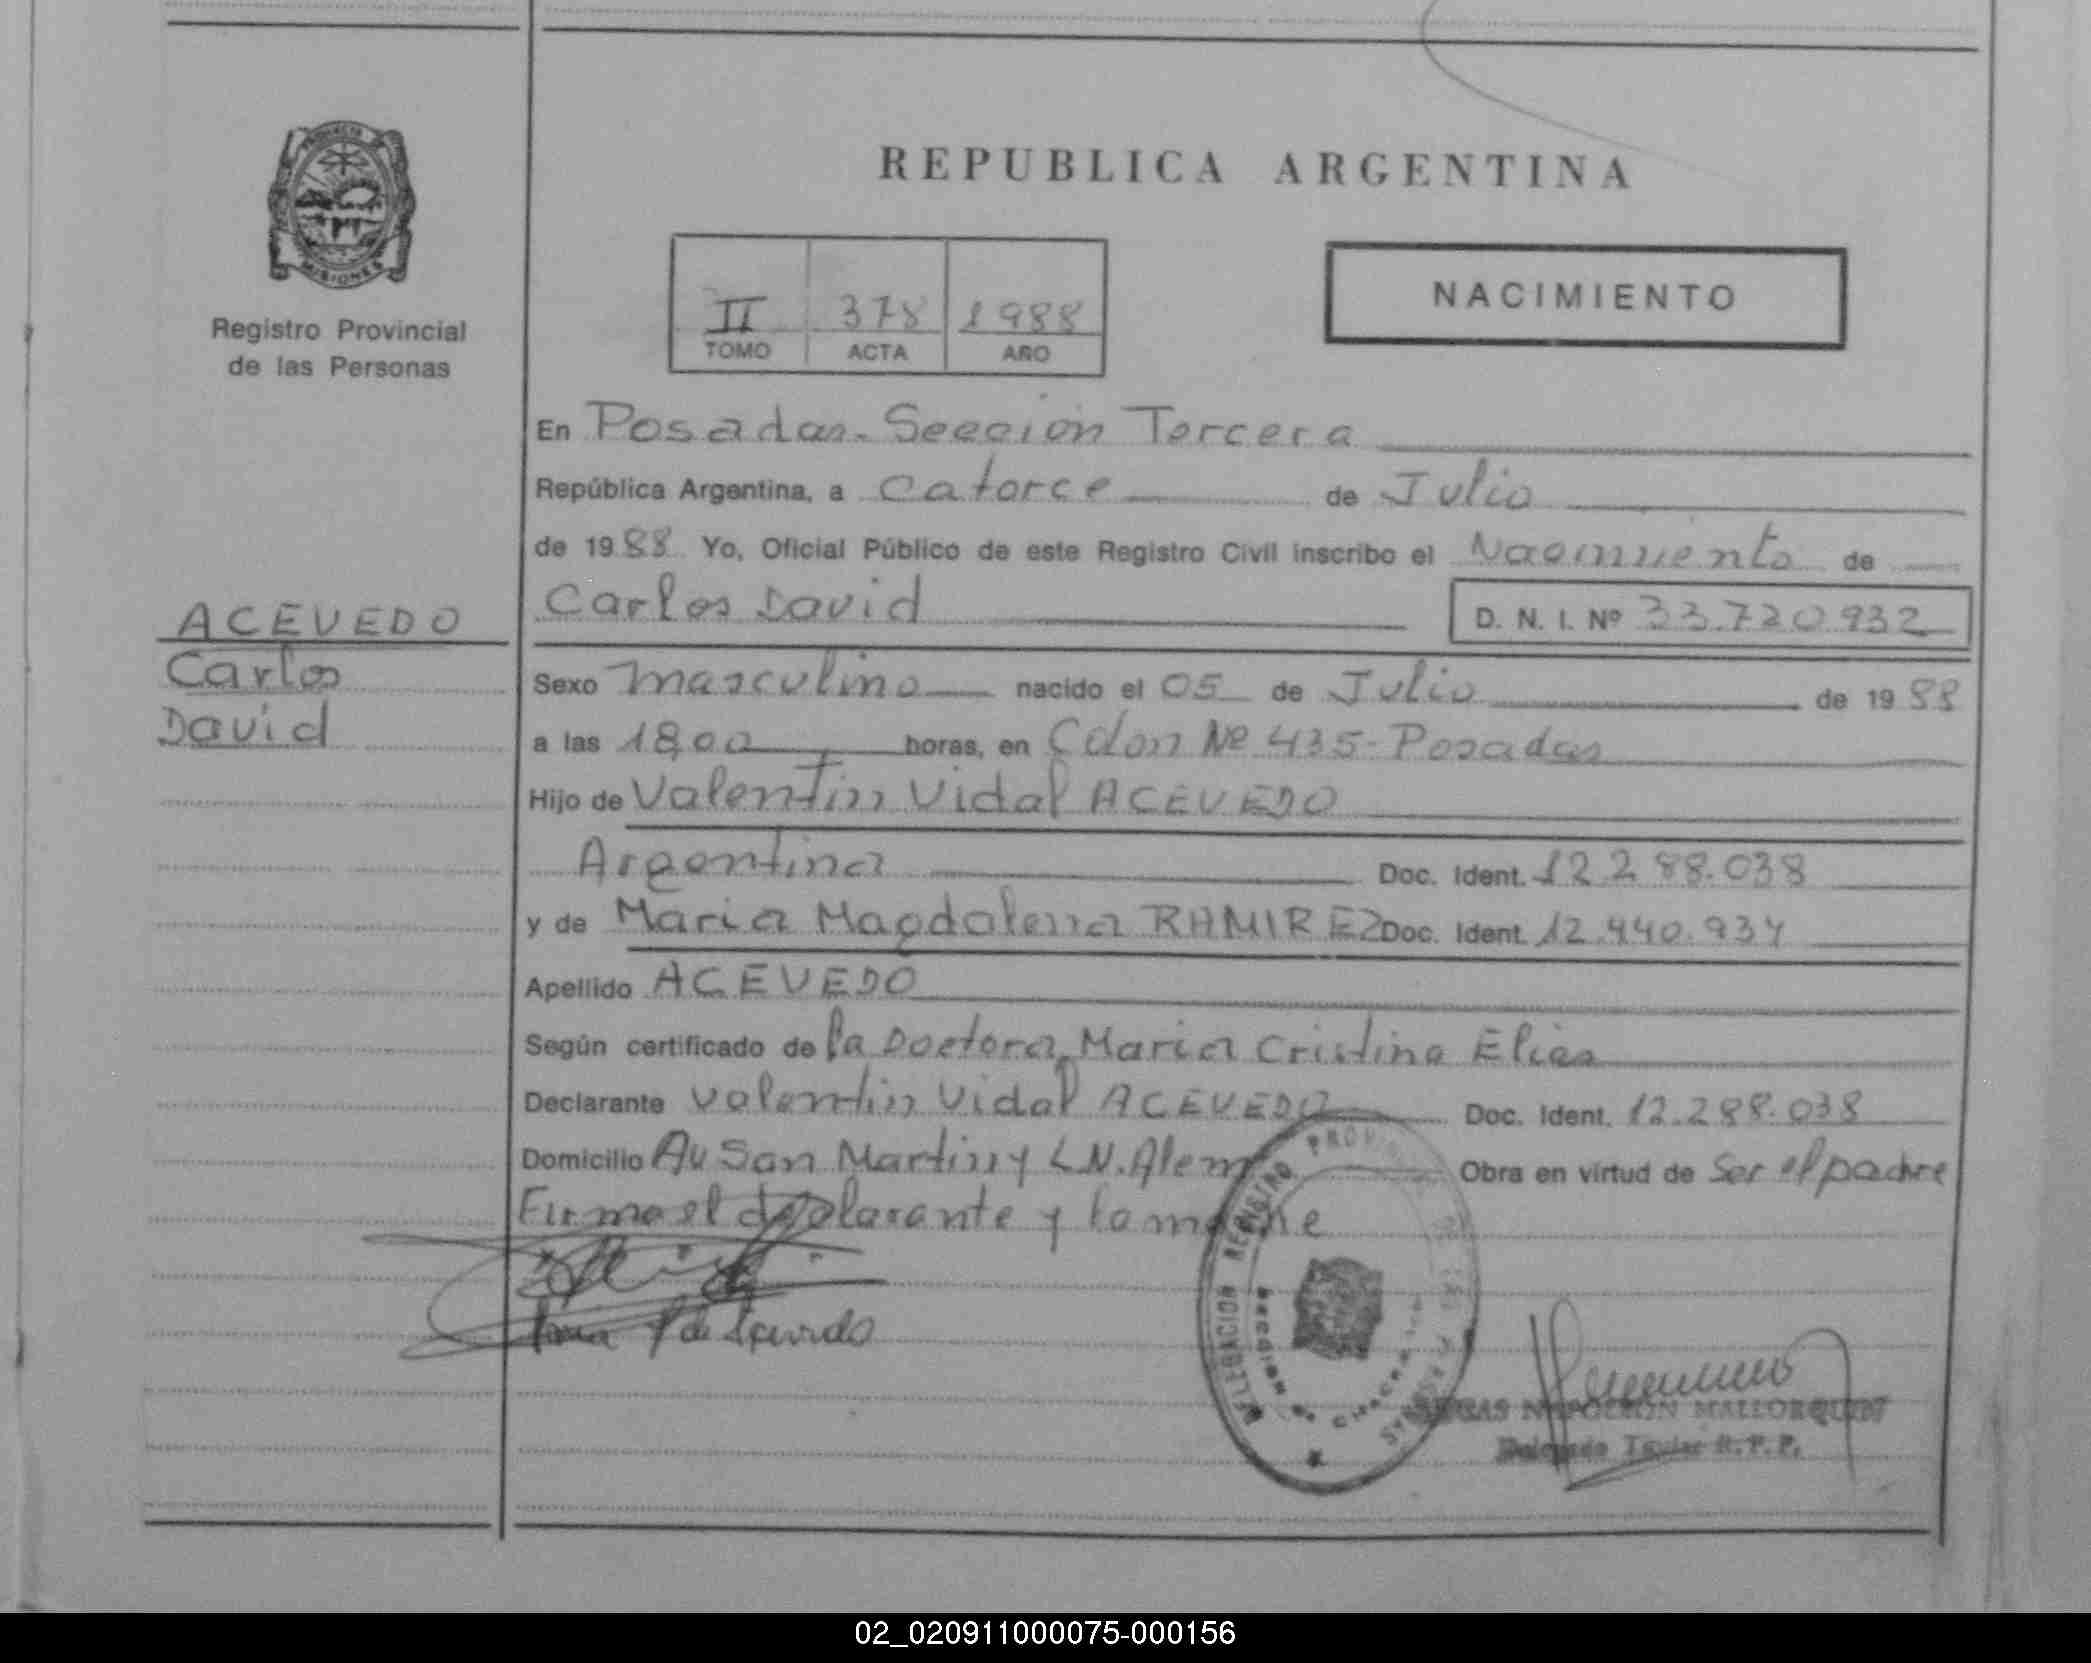 PROVINCIA
MISIONES
Registro Provincial
de las Personas
REPUBLICA ARGENTINA
II 378 1988
TOMO ACTA AÑO
NACIMIENTO
En Posadas-Seccion Tercera
República Argentina, a Catorce de Julio
de 1988 Yo, Oficial Público de este Registro Civil inscribo el Nacimiento de
Carlos David D. N. I. Nº 33.720.932
ACEVEDO
Carlos
David
Sexo Masculino nacido el 05 de Julio de 1988
a las 18,00 horas, en Colon Nº 435-Posadas
Hijo de Valentin Vidal ACEVEDO
Argentina Doc. Ident. 12.288.038
y de Maria Magdalena RAMIREZ Doc. Ident. 12.440.934
Apellido ACEVEDO
Según certificado de la Doctora, Maria Cristina Elias
Declarante Valentin Vidal ACEVEDO Doc. Ident. 12.288.038
Domicilio Av San Martin y L.N.Alem Obra en virtud de Ser el padre
Firma el declarante y la madre
de Acevedo
DELEGACION REGISTRO PROVINCIAL DE LAS PERSONAS
SECCION CHACRA
NAPOLEON MALLORQUIN
Delegado Titular R.P.P.
02_020911000075-000156